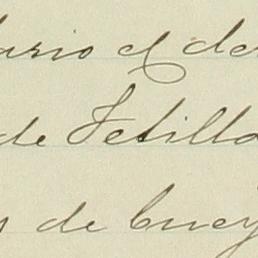 ario el de
de Tetilla
s de Cuey